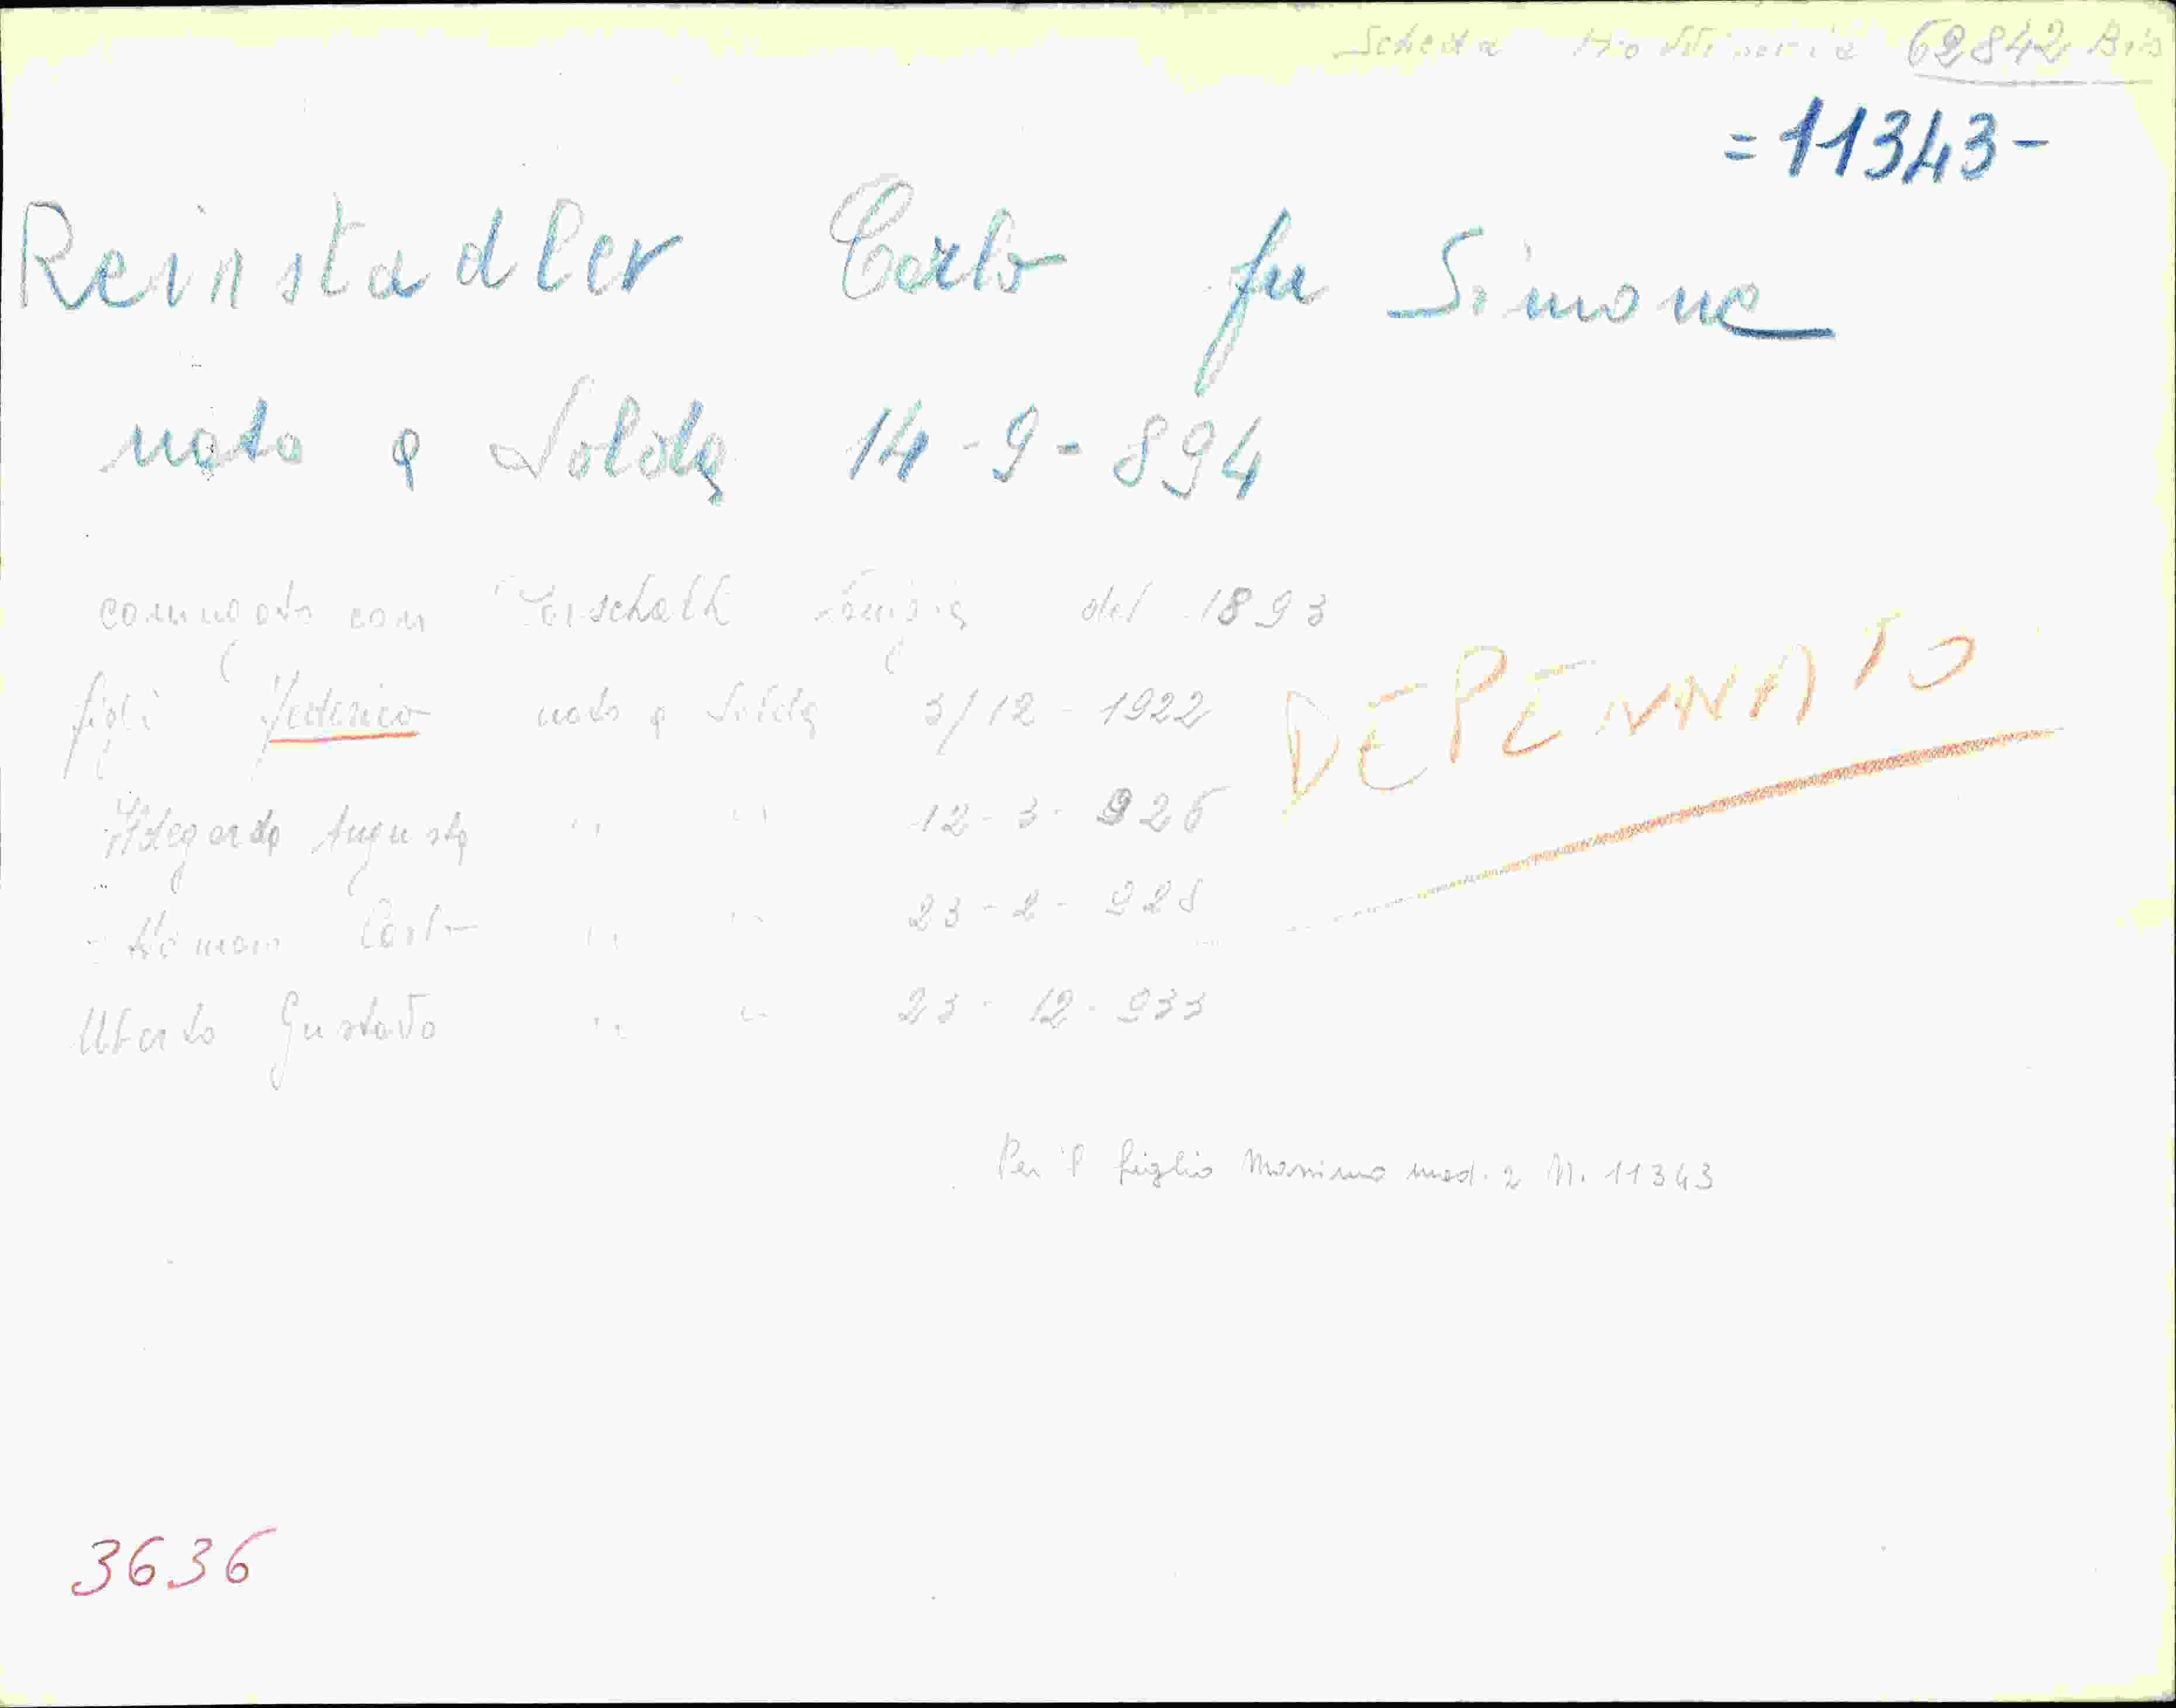 Scheda 62842 Bis
= 11343 -
Reinstadler Carlo fu Simone
nato a Solda 14-9-894
coniugato con Luigia del 1893
figli Federico nato a Solda 3/12-1922
Ildegarda Augusta " " 12-3-926
Carlo " " 23-2-928
Uberto Gustavo " " 23-12-933
DEPENNATO
Per il figlio Massimo mod. 2 N. 11343
3636